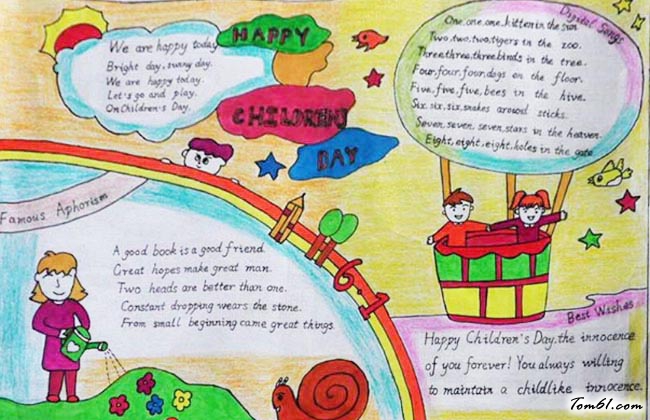 We are happy today
Bright day, sunny day.
We are happy today.
Let's go and play.
On Children's Day.
HAPPY
CHILDREN'S
DAY
Digital Songs
One, one, one, kitten in the sun.
Two, two, two, tigers in the zoo.
Three, three, three, birds in the tree.
Four, four, four, dogs on the floor.
Five, five, five, bees in the hive.
Six, six, six, snakes around sticks.
Seven, seven, seven, stars in the heaven.
Eight, eight, eight, holes in the gate.
Famous Aphorism
A good book is a good friend.
Great hopes make great man.
Two heads are better than one.
Constant dropping wears the stone.
From small beginning came great things.
6.1
Best Wishes
Happy Children's Day, the innocence
of you forever! You always willing
to maintain a childlike innocence.
Tom61.com